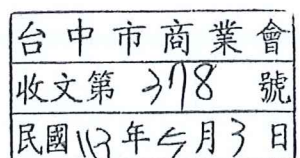 台中市商業會
收文第378號
民國113年5月3日